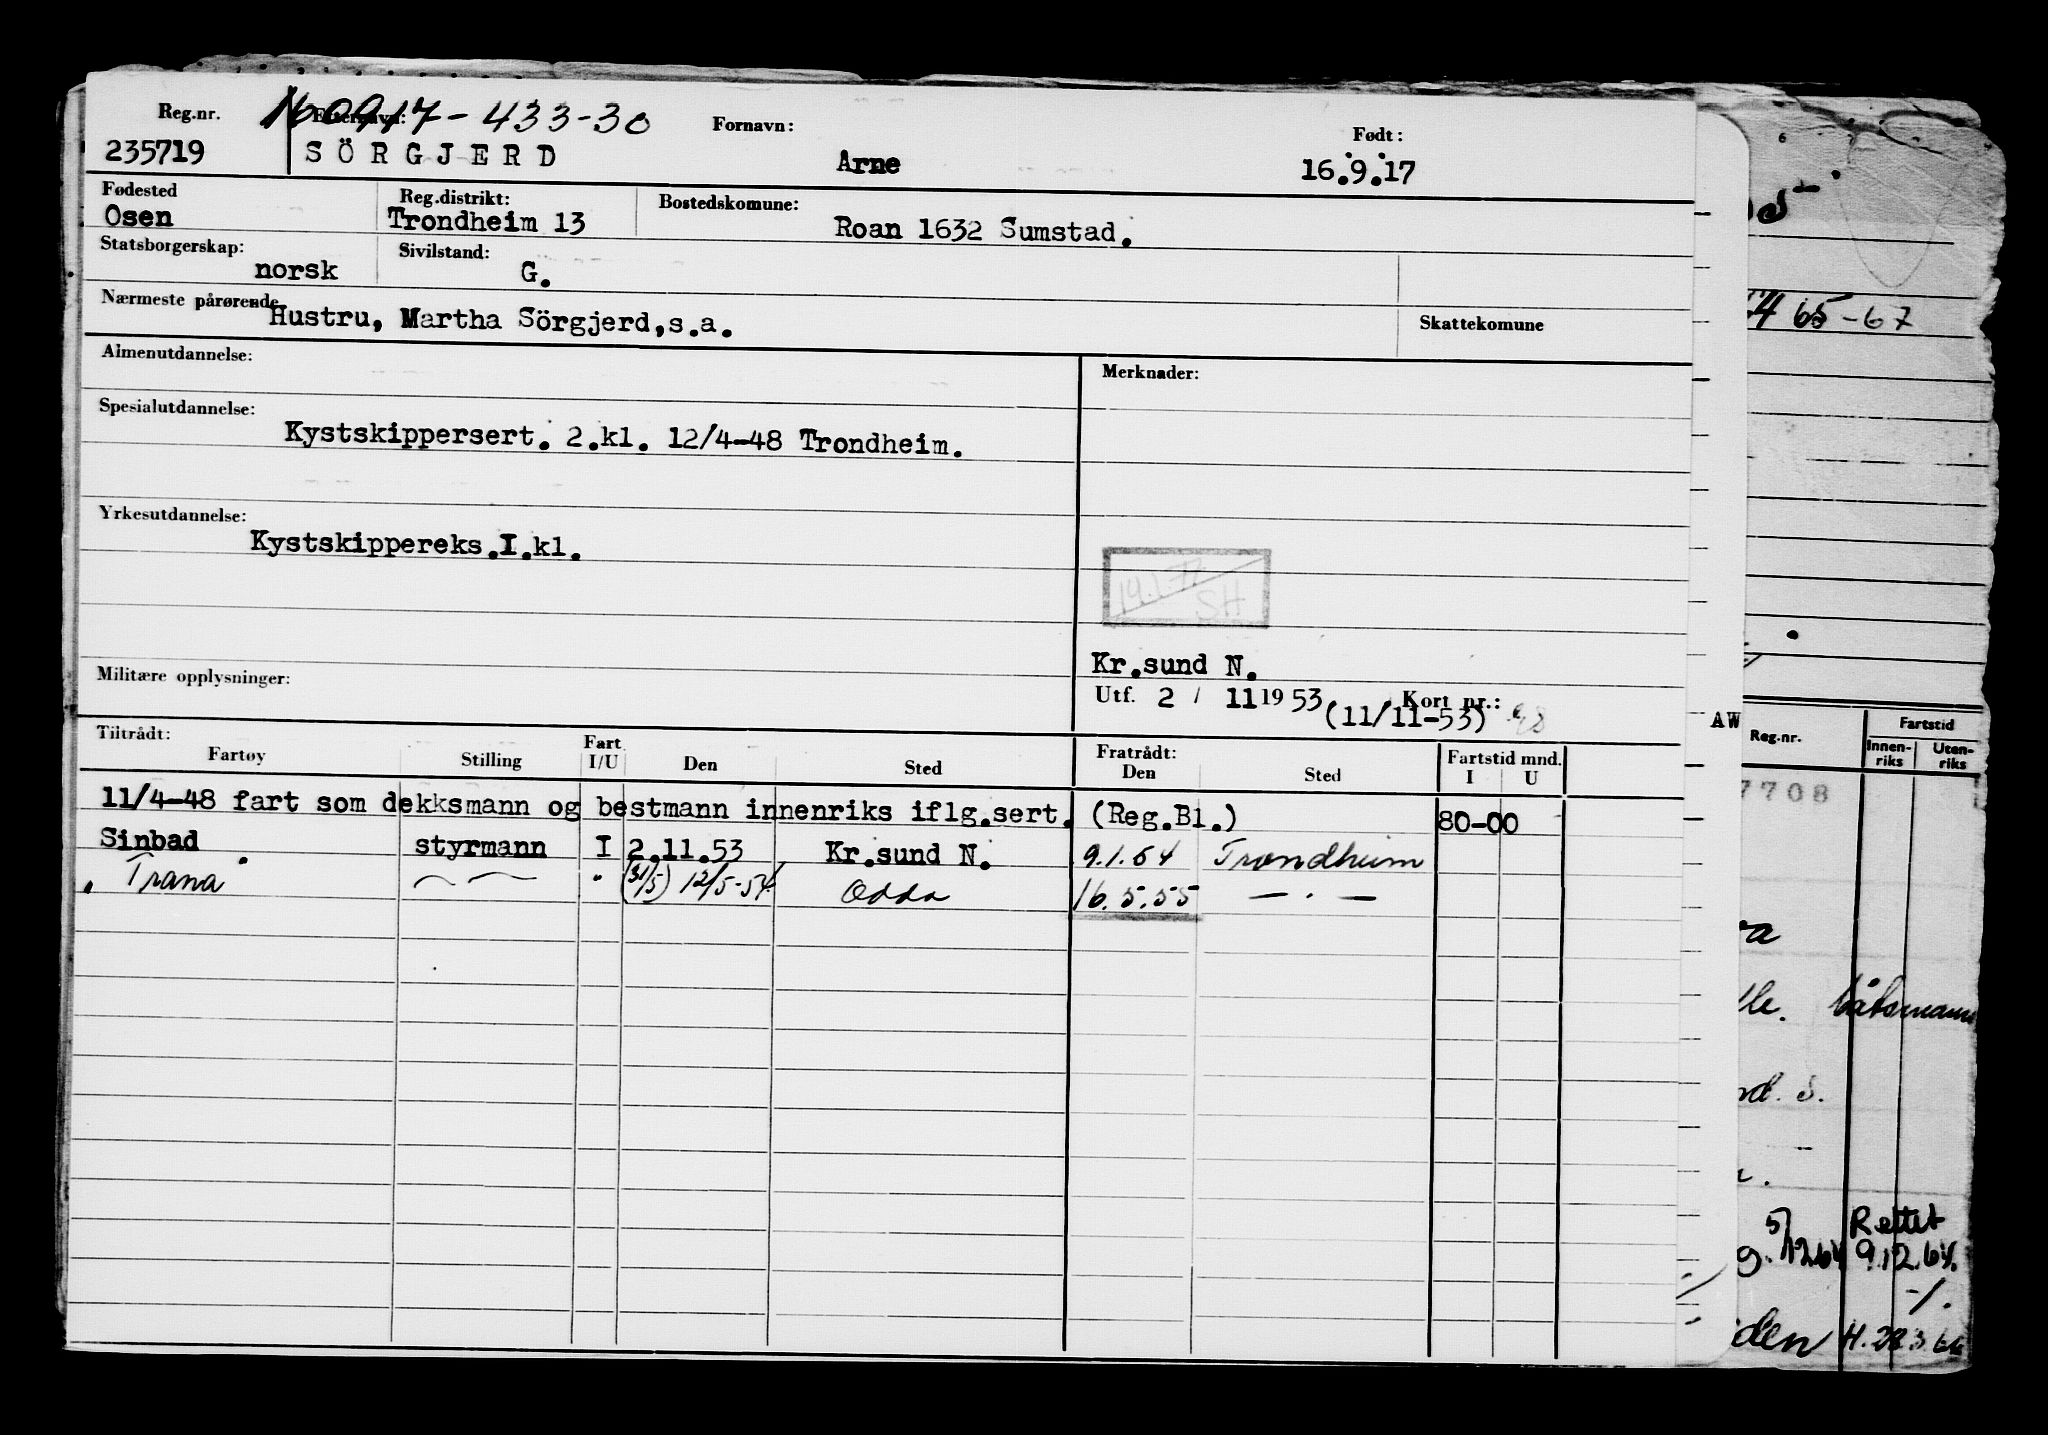 Reg.nr. Etternavn: 160917-433-30 Fornavn: Født:
235719 SÖRGJERD Arne 16.9.17
Fødested Reg.distrikt: Bostedskomune:
Osen Trondheim 13 Roan 1632 Sumstad.
Statsborgerskap: Sivilstand:
norsk G.
Nærmeste pårørende Hustru, Martha Sörgjerd,s.a. Skattekomune
Almenutdannelse: Merknader:
Spesialutdannelse:
Kystskippersert. 2.kl. 12/4-48 Trondheim.
Yrkesutdannelse:
Kystskippereks.I.kl.
SH
Kr.sund N.
Militære opplysninger: Utf. 2 / 11 1953 Kort nr.:
(11/11-53)
Tiltrådt: Fratrådt:
Fartøy Stilling Fart I/U Den Sted Den Sted Fartstid mnd. I U
11/4-48 fart som dekksmann og bestmann innenriks iflg.sert. (Reg.Bl.) 80-00
Sinbad styrmann I 2.11.53 Kr.sund N. 9.1.54 Trondheim
" Trana — — " (31/5) 12/5-54 Odda 16.5.55 — . —
65-67
AW
Reg.nr. Fartstid
Innenriks Utenriks
7708
båtsmann
nd. S.
5/12.64 Rettet
9.12.64.
-/.
H. 28.3.66